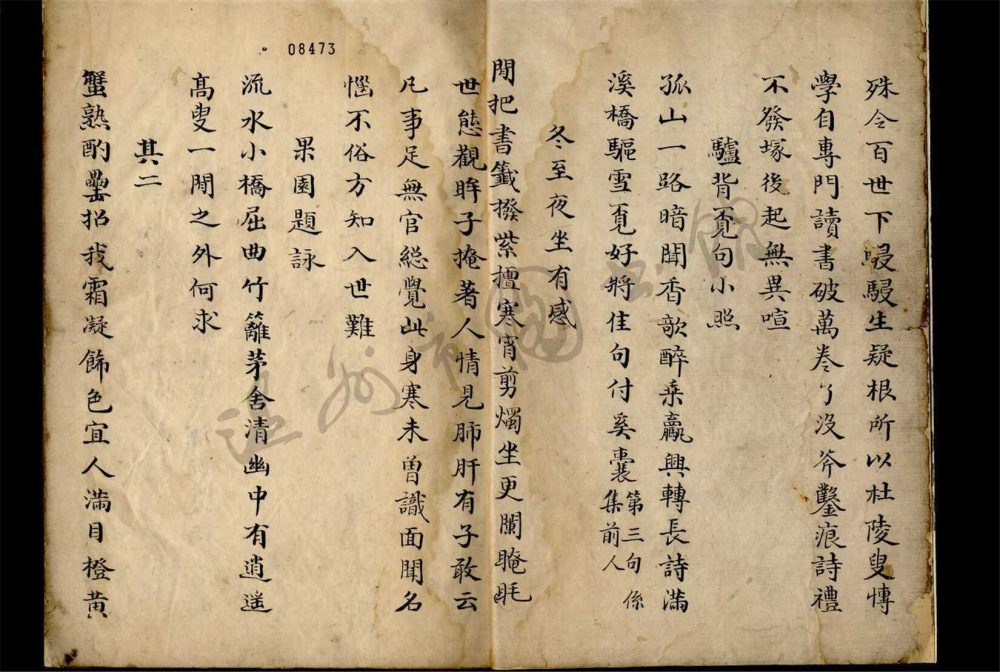 殊令百世下駸駸生疑根所以杜陵叟慱
學自專門讀書破萬卷了没斧鑿痕詩禮
不發塚後起無異喧
驢背覔句小照
孤山一路暗聞香歌醉乘羸興轉長詩滿
溪橋驅雪覔好將佳句付奚囊
第三句係
集前人
冬至夜坐有感
閒把書籤撥紫擅寒宵剪燭坐更闌晻眊
世態觀眸子掩著人情見肺肝有子敢云
凡事足無官総覺此身寒未曽識面聞名
慣不俗方知入世難
果園題詠
流水小橋屈曲竹籬茅舍清幽中有逍遥
髙叟一閒之外何求
其二
蟹熟酌罍招我霜凝飾色宜人滿目橙黄
08473
温州市圖書館